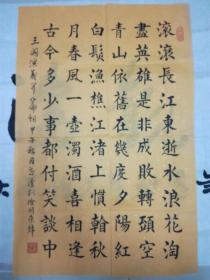 滚滚長江東逝水浪花淘
盡英雄是非成敗轉頭空
青山依舊在幾度夕陽紅
白髮漁樵江渚上慣看秋
月春風一壺濁酒喜相逢
古今多少事都付笑談中
三國演義 甲午秋月